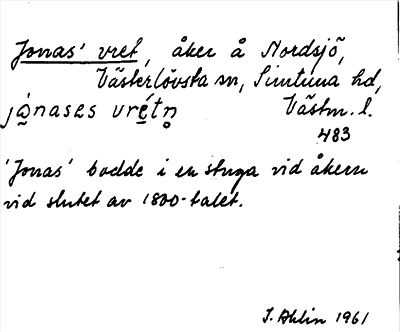 Jonas' vret, åker å Nordsjö,
Västerlövsta sn, Simtuna hd,
jo̰nases vré̱tn̥ Västm. l.
483
'Jonas' bodde i en stuga vid åkern
vid slutet av 1800-talet.
I. Ahlin 1961